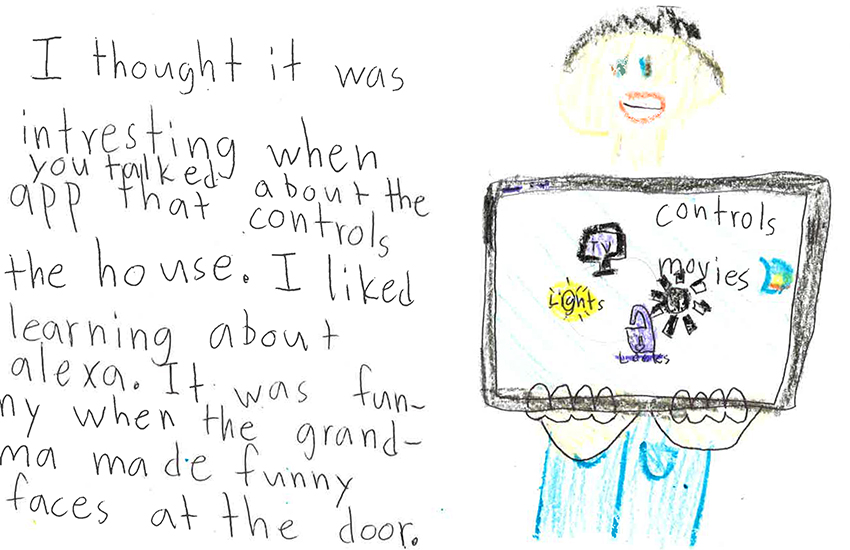 I thought it was
intresting when
you talked about the
app that controls
the house. I liked
learning about
alexa. It was fun-
ny when the grand-
ma made funny
faces at the door.
controls
TV
movies
Lights